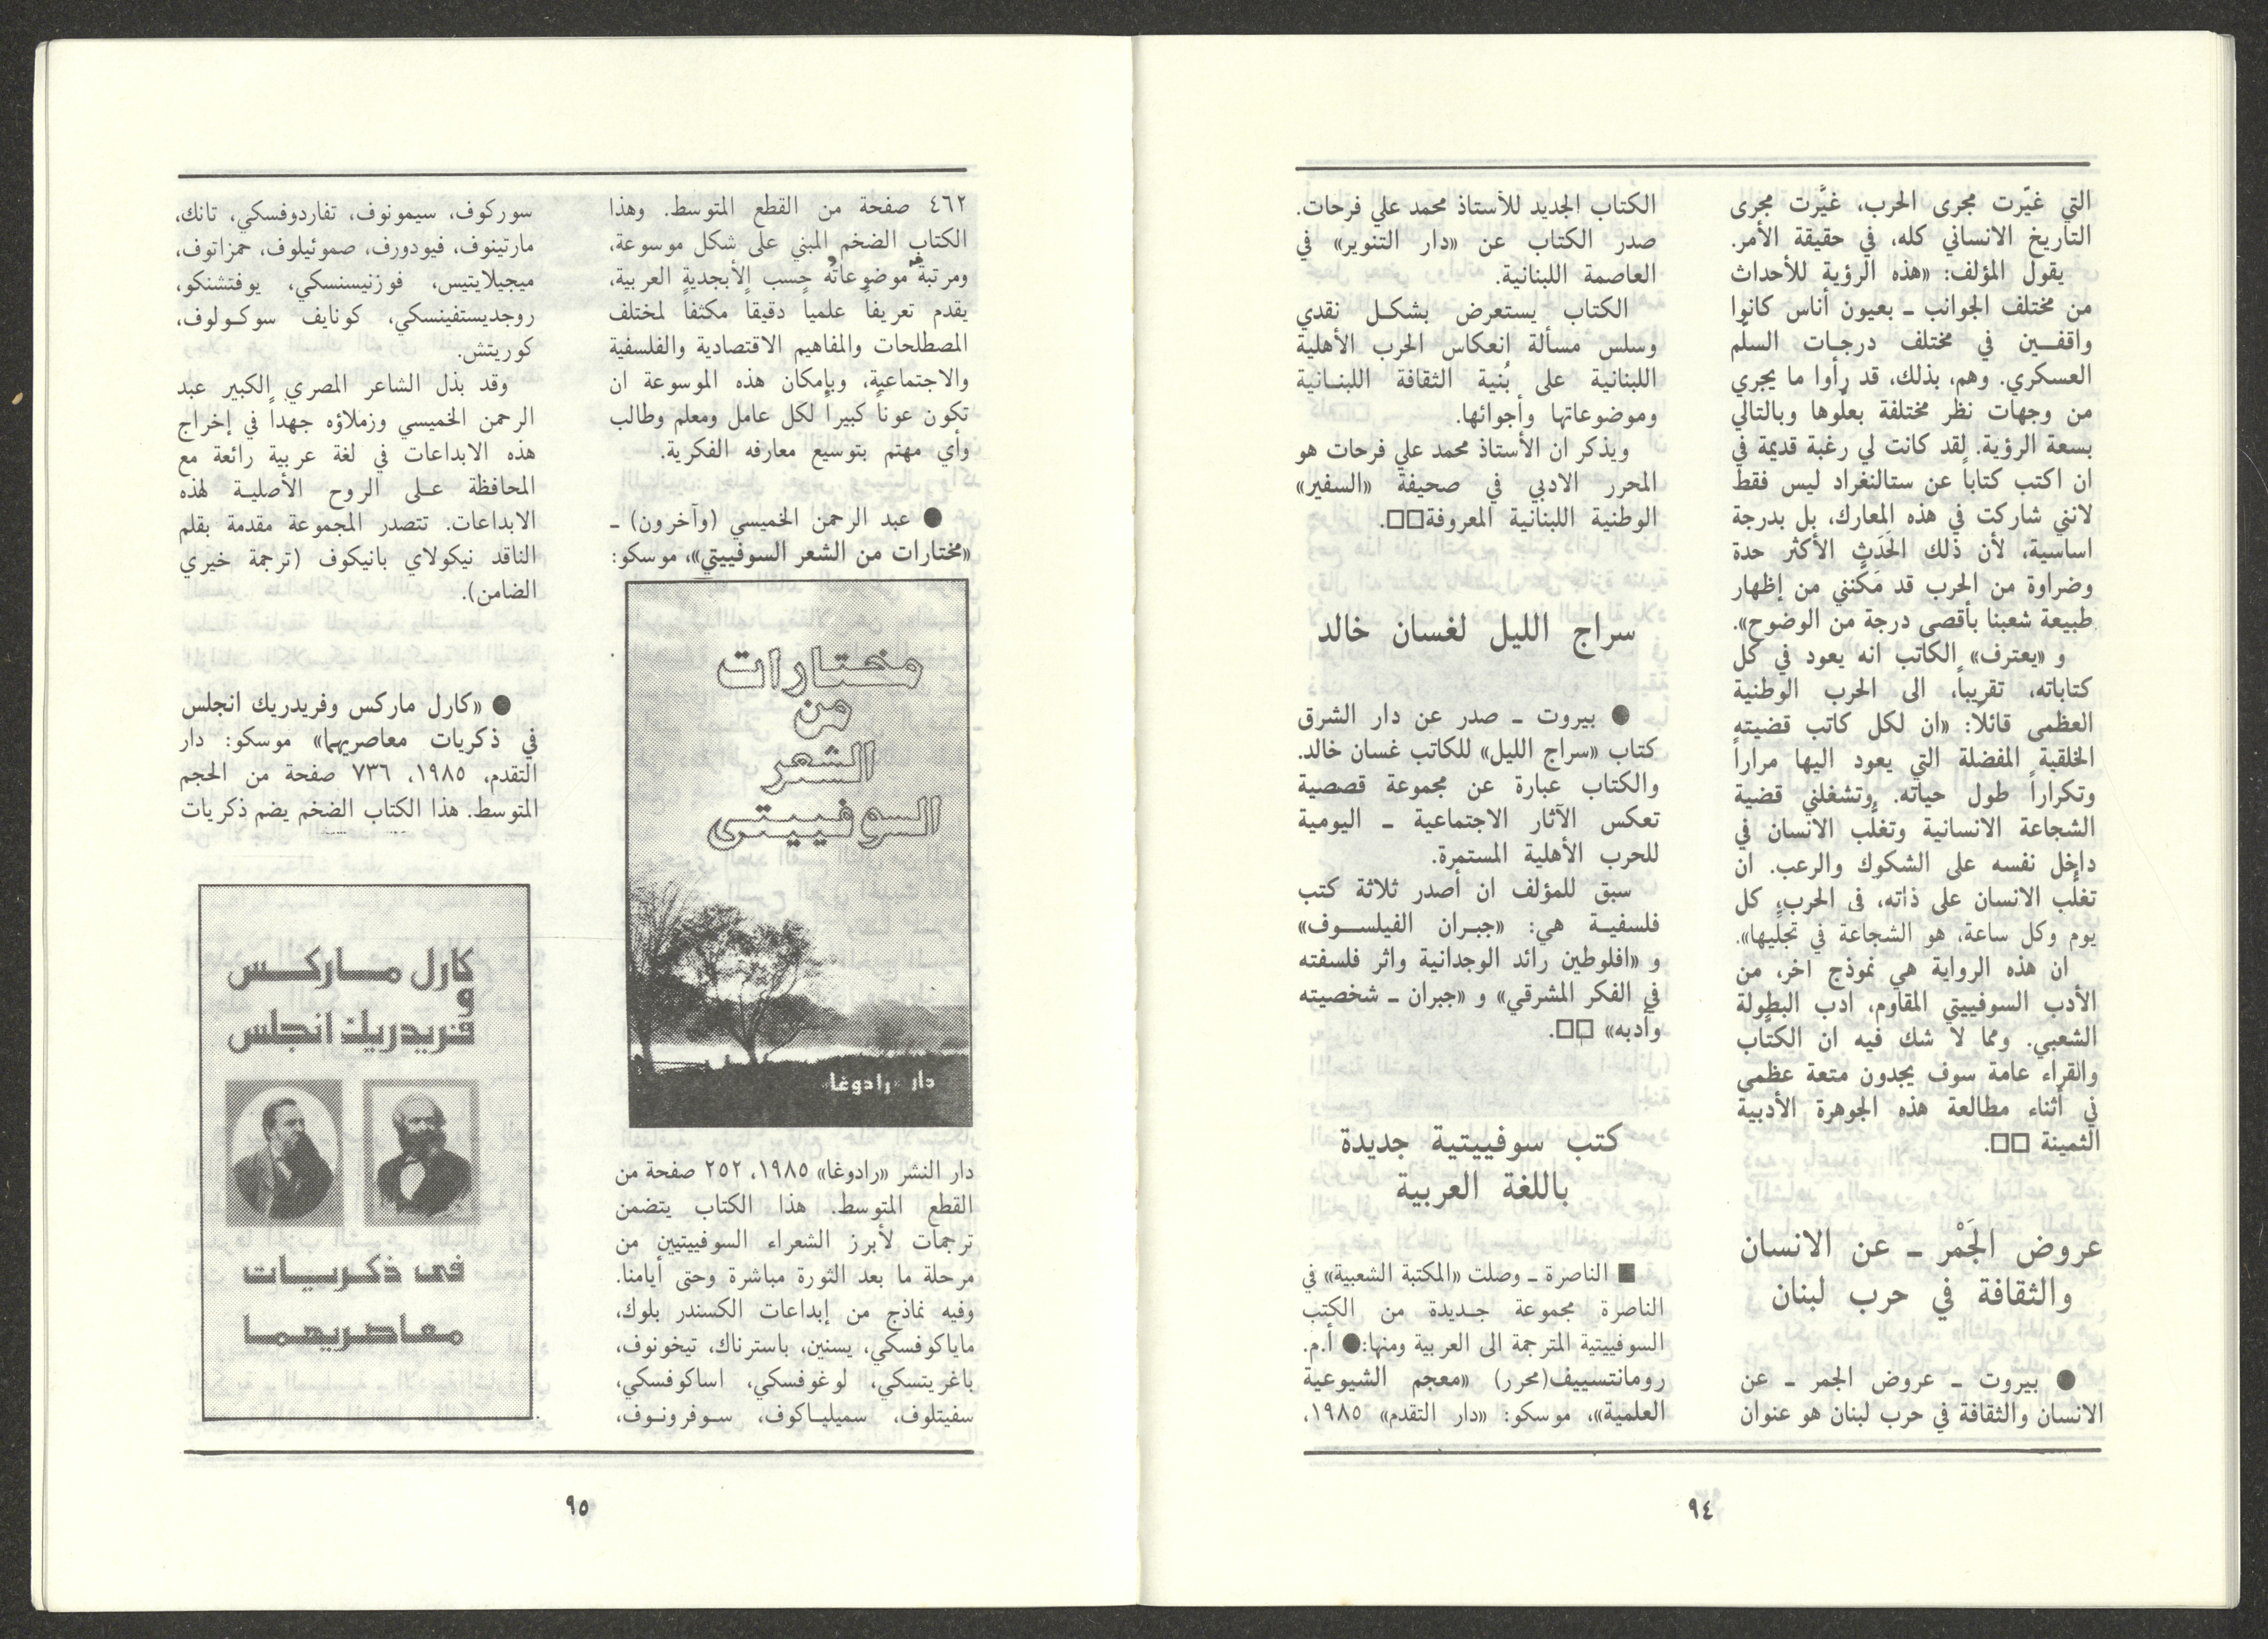 التي غيّرت مجرى الحرب، غيَّرت مجرى
التاريخ الانساني كله، في حقيقة الأمر.
يقول المؤلف: «هذه الرؤية للأحداث
من مختلف الجوانب ـ بعيون أناس كانوا
واقفـــين في مختلف درجـات السلّم
العسكري. وهم، بذلك، قد رأوا ما يجري
من وجهات نظر مختلفة بعلّوها وبالتالي
بسعة الرؤية. لقد كانت لي رغبة قديمة في
ان اكتب كتاباً عن ستالنغراد ليس فقط
لانني شاركت في هذه المعارك، بل بدرجة
اساسية، لأن ذلك الحَدَث الأكثر حدة
وضراوة من الحرب قد مَكَّنني من إظهار
طبيعة شعبنا بأقصى درجة من الوضوح».
و «يعترف» الكاتب انه يعود في كل
كتاباته، تقريباً، الى الحرب الوطنية
العظمى قائلاً: «ان لكل كاتب قضيته
الخلقية المفضلة التي يعود اليها مراراً
وتكراراً طول حياته. وتشغلني قضية
الشجاعة الانسانية وتغلّب الانسان في
داخل نفسه على الشكوك والرعب. ان
تغلّب الانسان على ذاته، في الحرب، كل
يوم وكل ساعة، هو الشجاعة في تجلّيها».
ان هذه الرواية هي نموذج اخر، من
الأدب السوفييتي المقاوم، ادب البطولة
الشعبي. ومما لا شك فيه ان الكتّاب
والقراء عامة سوف يجدون متعة عظمى
في أثناء مطالعة هذه الجوهرة الأدبية
الثمينة □□.
عروض الجَمْر ـ عن الانسان
والثقافة في حرب لبنان
● بيروت ـ عروض الجمر ـ عن
الانسان والثقافة في حرب لبنان هو عنوان
الكتاب الجديد للأستاذ محمد علي فرحات.
صدر الكتاب عن «دار التنوير» في
العاصمة اللبنانية.
الكتاب يستعرض بشكـل نقدي
وسلس مسألة انعكاس الحرب الأهلية
اللبنانية على بُنية الثقافة اللبنـانية
وموضوعاتها وأجوائها.
ويذكر ان الأستاذ محمد علي فرحات هو
المحرر الادبي في صحيفة «السفير»
الوطنية اللبنانية المعروفة□□.
سراج الليل لغسان خالد
● بيروت ـ صدر عن دار الشرق
كتاب «سراج الليل» للكاتب غسان خالد.
والكتاب عبارة عن مجموعة قصصية
تعكس الآثار الاجتماعية ـ اليومية
للحرب الأهلية المستمرة.
سبق للمؤلف ان أصدر ثلاثة كتب
فلسفيـة هي: «جبـران الفيلسـوف»
و «افلوطين رائد الوجدانية واثر فلسفته
في الفكر المشرقي» و «جبران ـ شخصيته
وأدبه» □□.
كتب سوفييتية جديدة
باللغة العربية
■ الناصرة ـ وصلت «المكتبة الشعبية» في
الناصرة مجموعة جـديدة من الكتب
السوفييتية المترجمة الى العربية ومنها:● أ.م.
رومانتسييف(محرر) «معجم الشيوعية
العلمية»، موسكو: «دار التقدم» ١٩٨٥،
٩٤
٤٦٢ صفحة من القطع المتوسط. وهذا
الكتاب الضخم المبني على شكل موسوعة،
ومرتبة موضوعاته حسب الأبجدية العربية،
يقدم تعريفاً علمياً دقيقاً مكثفاً لمختلف
المصطلحات والمفاهيم الاقتصادية والفلسفية
والاجتماعية، وبإمكان هذه الموسوعة ان
تكون عوناً كبيراً لكل عامل ومعلم وطالب
وأي مهتم بتوسيع معارفه الفكرية.
● عبد الرحمن الخميسي (وآخرون) ـ
«مختارات من الشعر السوفييتي»، موسكو:
مختارات
من
الشعر
السوفييتى
دار «رادوغا»
دار النشر «رادوغا» ١٩٨٥، ٢٥٢ صفحة من
القطع المتوسط. هذا الكتاب يتضمن
ترجمات لأبرز الشعراء السوفييتيين من
مرحلة ما بعد الثورة مباشرة وحتى أيامنا.
وفيه نماذج من إبداعات الكسندر بلوك،
ماياكوفسكي، يسنين، باسترناك، تيخونوف،
باغريتسكي، لوغوفسكي، اساكوفسكي،
سفيتلوف، سميليـاكوف، سـوفرونـوف،
سوركوف، سيمونوف، تفاردوفسكي، تانك،
مارتينوف، فيودورف، صموئيلوف، حمزاتوف،
ميجيلايتيس، فوزنيسنسكي، يوفتشنكو،
روجديستفينسكي، كونايف سوكـولوف،
كوريتش.
وقد بذل الشاعر المصري الكبير عبد
الرحمن الخميسي وزملاؤه جهداً في إخراج
هذه الابداعات في لغة عربية رائعة مع
المحافظة عـلى الروح الأصليـة لهذه
الابداعات. تتصدر المجموعة مقدمة بقلم
الناقد نيكولاي بانيكوف (ترجمة خيري
الضامن).
● «كارل ماركس وفريدريك انجلس
في ذكريات معاصريهما» موسكو: دار
التقدم، ١٩٨٥، ٧٣٦ صفحة من الحجم
المتوسط. هذا الكتاب الضخم يضم ذكريات
كارل ماركس
و
فريدريك انجلس
فى ذكريات
معاصريهما
٩٥